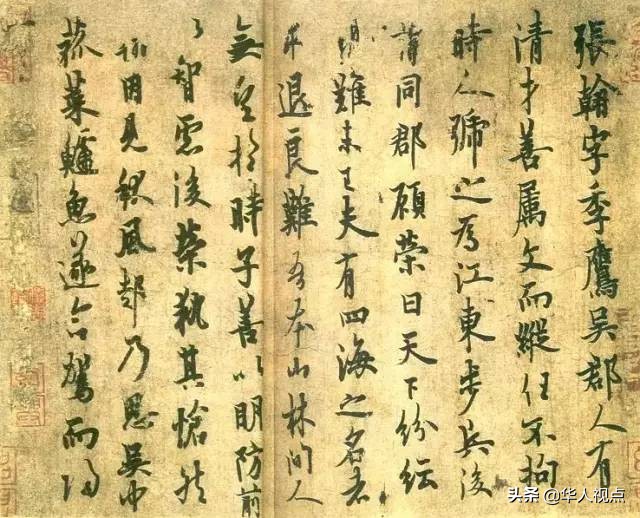 張翰字季鷹吳郡人有
清才善屬文而縱任不拘
時人號之為江東步兵後
謂同郡顧榮曰天下紛紜
禍難未已夫有四海之名者
求退良難吾本山林間人
無望於時子善以明防前
以智慮後榮執其愴然
翰因見秋風起乃思吳中
菰菜鱸魚遂命駕而歸
头条 @华人视点